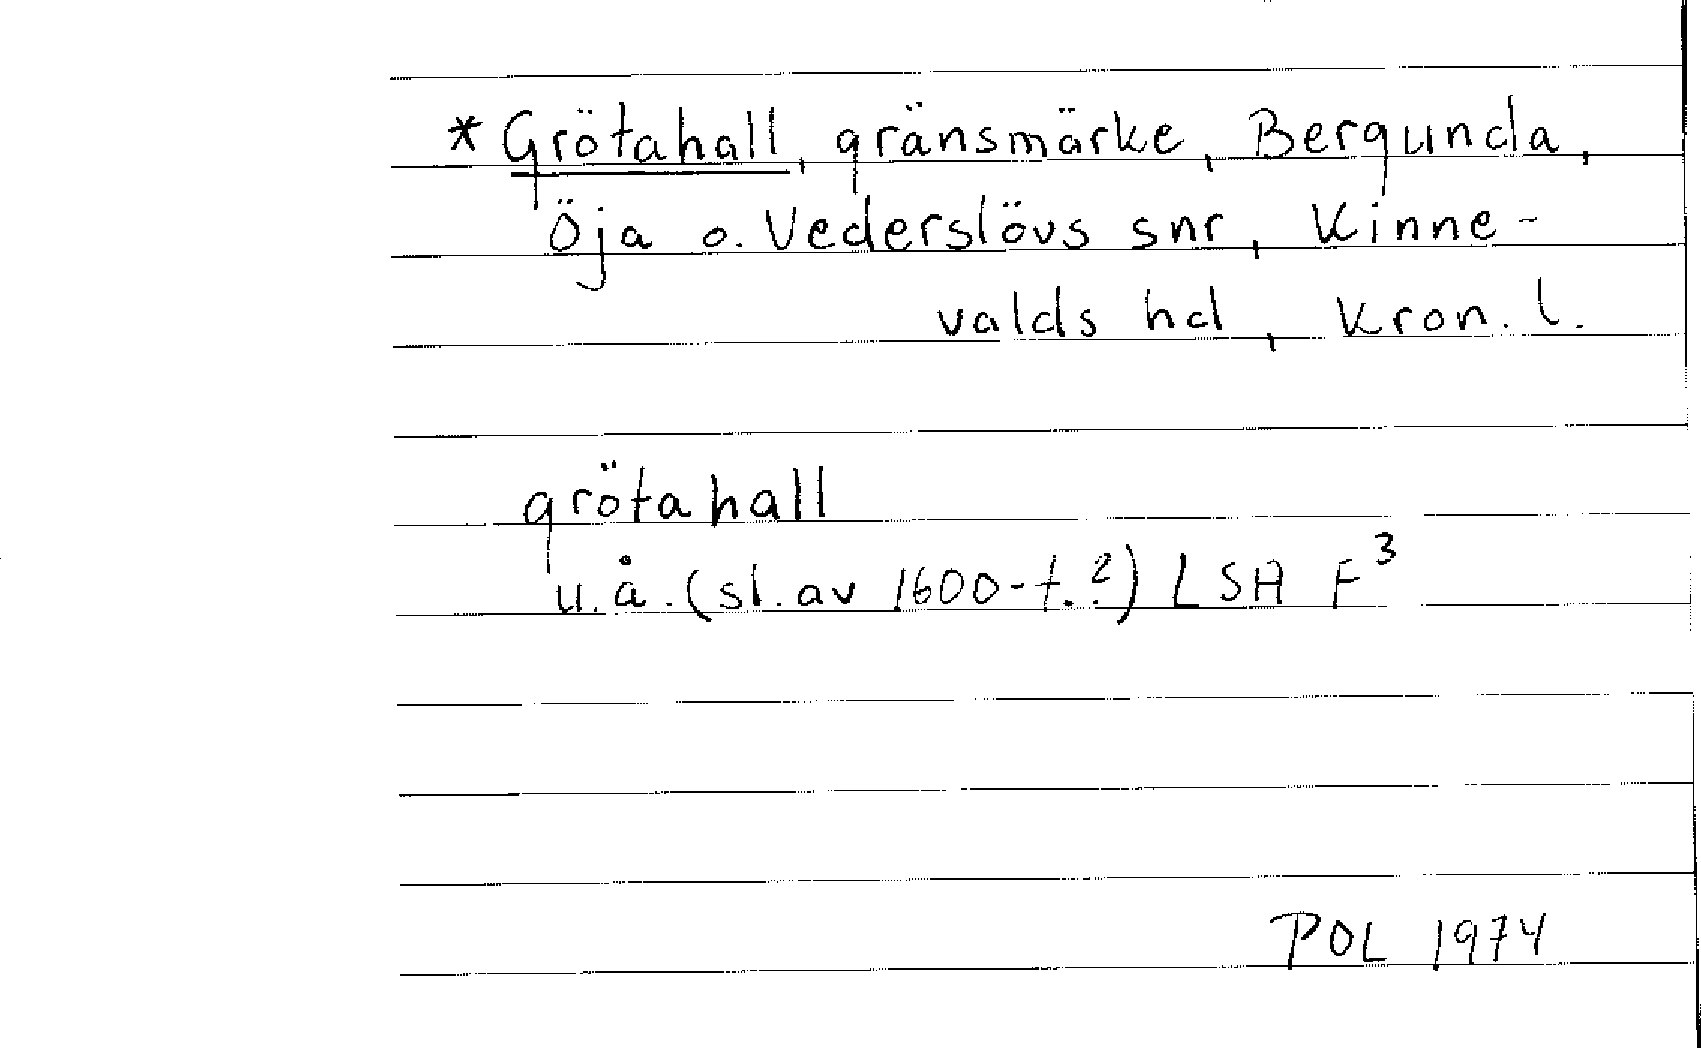 *Grötahall, gränsmärke, Bergunda,
Öja o. Vederslövs snr, Kinne-
valds hd, Kron. l.
grötahall
u.å. (sl. av 1600-t.?) LSA F³
POL 1974